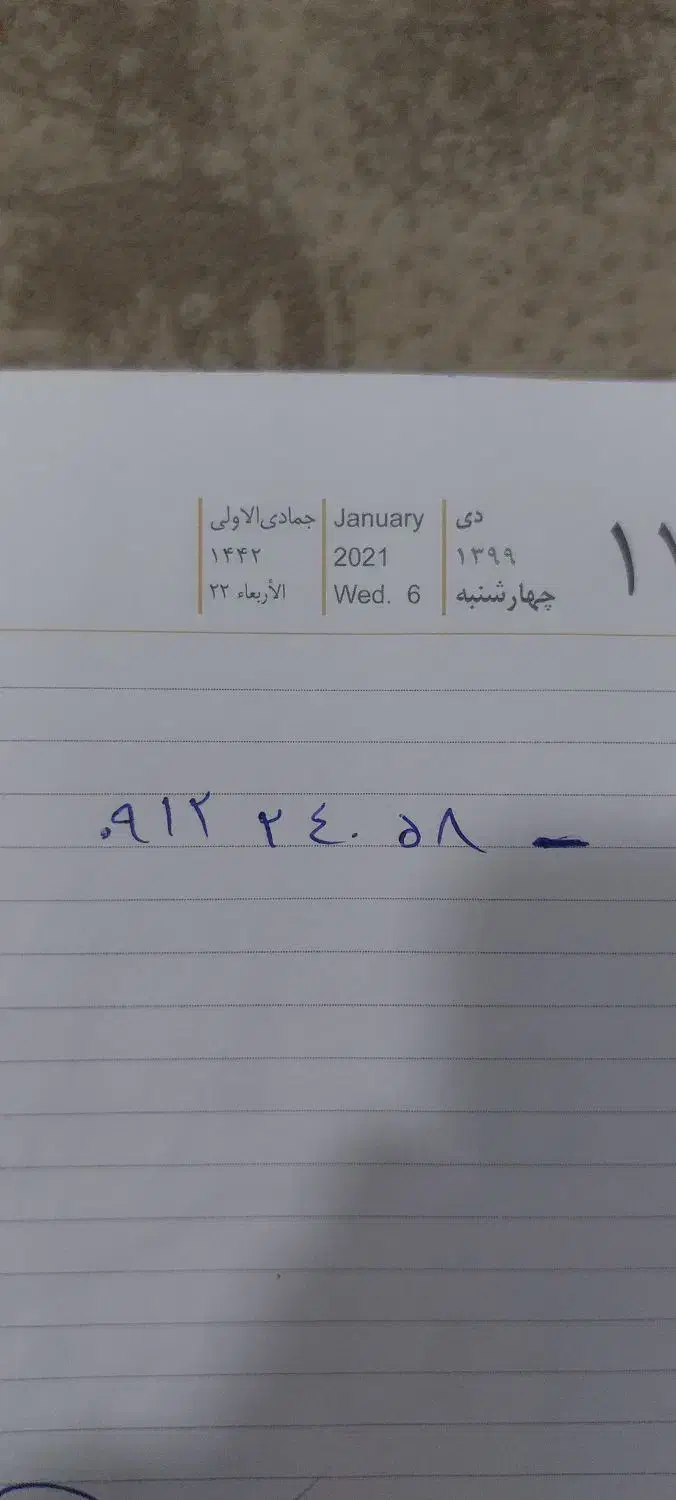 ۱۷
دی
۱۳۹۹
چهارشنبه
January
2021
Wed. 6
جمادی‌الاولی
۱۴۴۲
الأربعاء ۲۲
۰۹۱۲ ۲۴۰ ۵۸ -